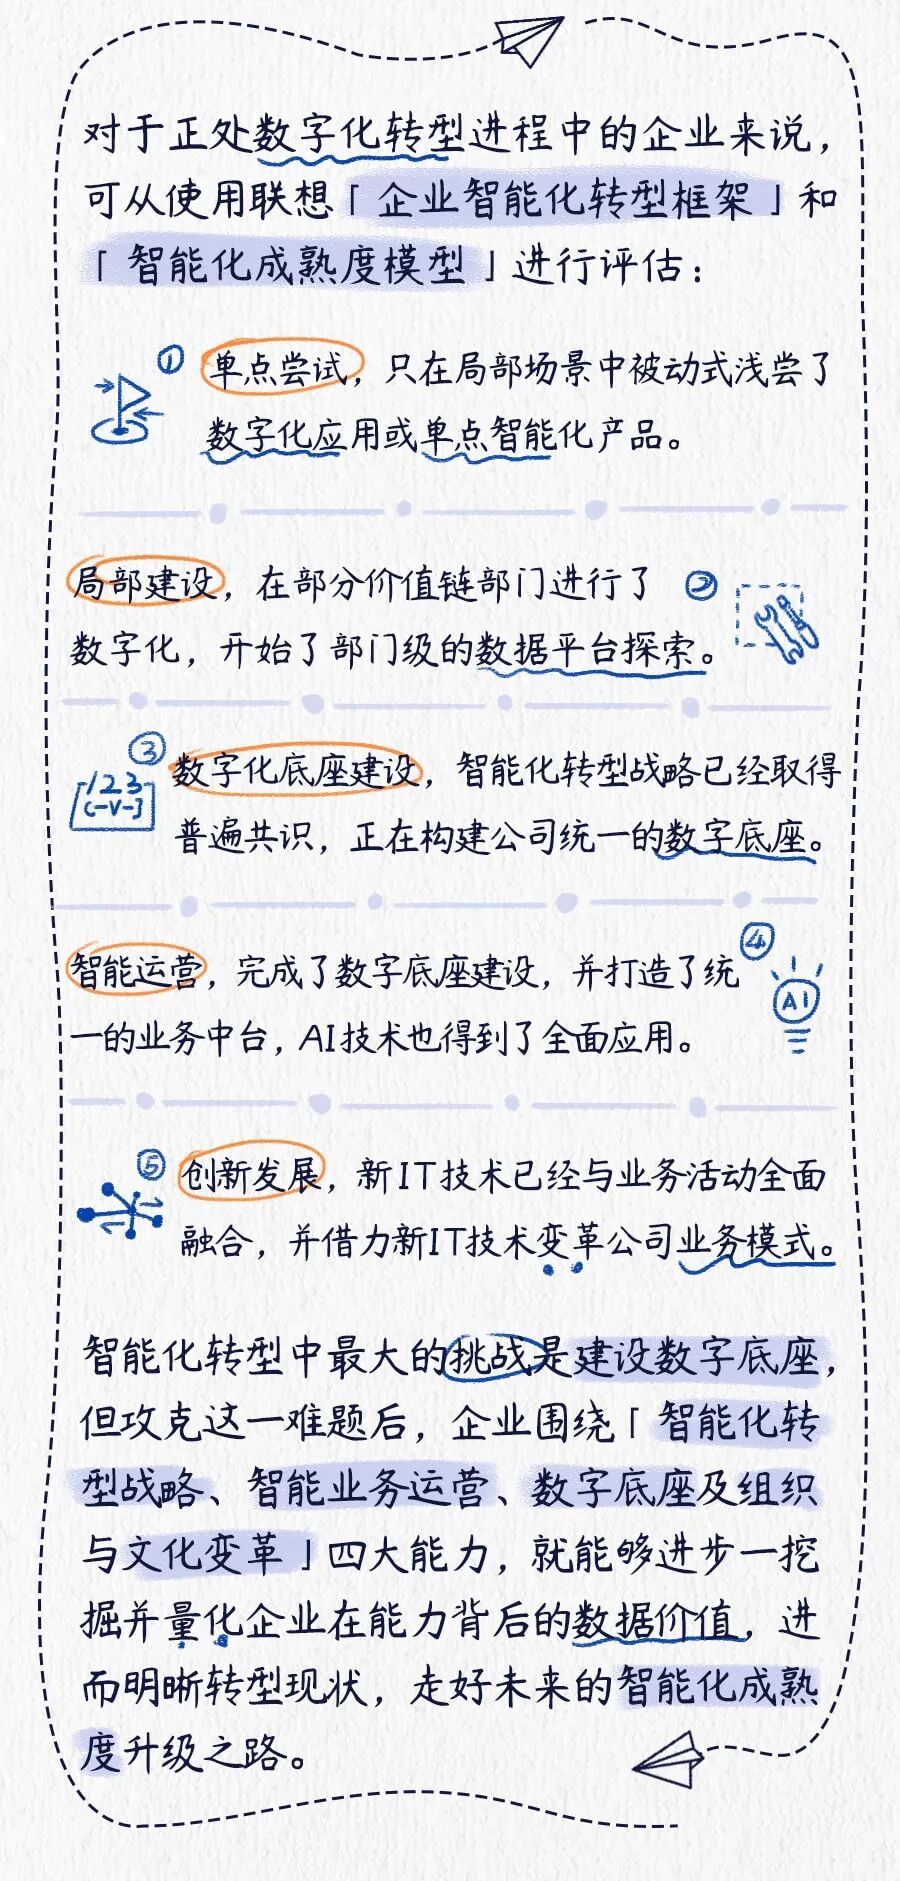 对于正处数字化转型进程中的企业来说，
可从使用联想「企业智能化转型框架」和
「智能化成熟度模型」进行评估：
①
单点尝试，只在局部场景中被动式浅尝了
数字化应用或单点智能化产品。
局部建设，在部分价值链部门进行了
②
数字化，开始了部门级的数据平台探索。
③
123
(-V-]
数字化底座建设，智能化转型战略已经取得
普遍共识，正在构建公司统一的数字底座。
④
智能运营，完成了数字底座建设，并打造了统
AI
一的业务中台，AI技术也得到了全面应用。
⑤
创新发展，新IT技术已经与业务活动全面
融合，并借力新IT技术变革公司业务模式。
智能化转型中最大的挑战是建设数字底座，
但攻克这一难题后，企业围绕「智能化转
型战略、智能业务运营、数字底座及组织
与文化变革」四大能力，就能够进步一挖
掘并量化企业在能力背后的数据价值，进
而明晰转型现状，走好未来的智能化成熟
度升级之路。